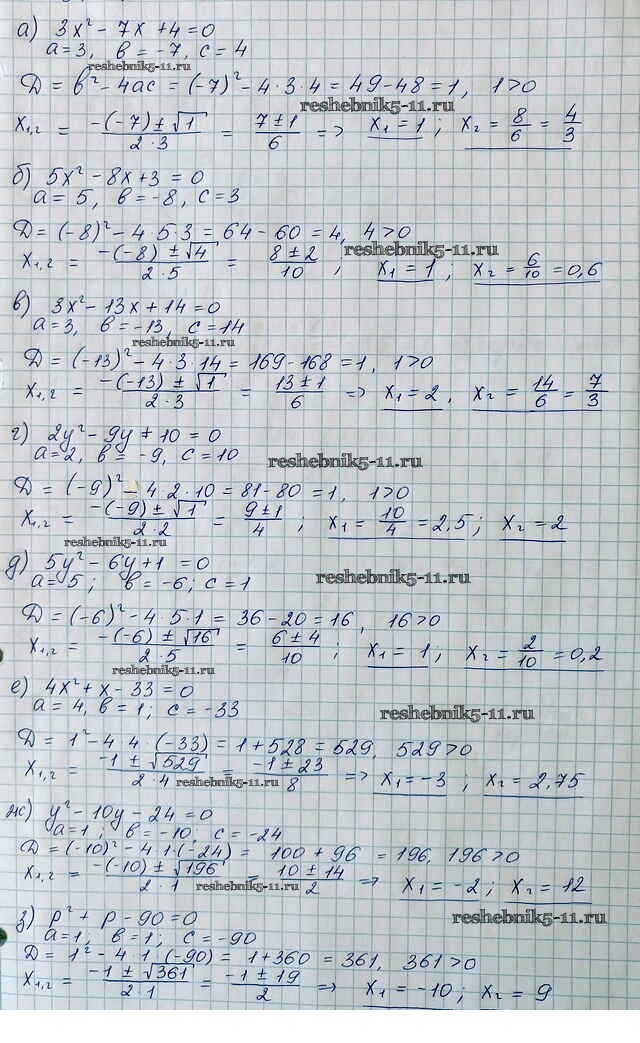 а) 3x² - 7x + 4 = 0
a = 3, в = -7, c = 4
reshebnik5-11.ru
D = в² - 4ac = (-7)² - 4·3·4 = 49 - 48 = 1, 1 > 0
reshebnik5-11.ru
x₁,₂ = (-(-7) ± √1)/(2·3) = (7 ± 1)/6 => x₁ = 1; x₂ = 8/6 = 4/3
б) 5x² - 8x + 3 = 0
a = 5, в = -8, c = 3
D = (-8)² - 4·5·3 = 64 - 60 = 4, 4 > 0
reshebnik5-11.ru
x₁,₂ = (-(-8) ± √4)/(2·5) = (8 ± 2)/10; x₁ = 1; x₂ = 6/10 = 0,6
в) 3x² - 13x + 14 = 0
a = 3, в = -13, c = 14
reshebnik5-11.ru
D = (-13)² - 4·3·14 = 169 - 168 = 1, 1 > 0
x₁,₂ = (-(-13) ± √1)/(2·3) = (13 ± 1)/6 => x₁ = 2, x₂ = 14/6 = 7/3
г) 2y² - 9y + 10 = 0
a = 2, в = -9, c = 10
reshebnik5-11.ru
D = (-9)² - 4·2·10 = 81 - 80 = 1, 1 > 0
x₁,₂ = (-(-9) ± √1)/(2·2) = (9 ± 1)/4; x₁ = 10/4 = 2,5; x₂ = 2
reshebnik5-11.ru
д) 5y² - 6y + 1 = 0
a = 5; в = -6; c = 1
reshebnik5-11.ru
D = (-6)² - 4·5·1 = 36 - 20 = 16, 16 > 0
x₁,₂ = (-(-6) ± √16)/(2·5) = (6 ± 4)/10; x₁ = 1; x₂ = 2/10 = 0,2
reshebnik5-11.ru
е) 4x² + x - 33 = 0
a = 4, в = 1; c = -33
reshebnik5-11.ru
D = 1² - 4·4·(-33) = 1 + 528 = 529, 529 > 0
x₁,₂ = (-1 ± √529)/(2·4) = (-1 ± 23)/8 => x₁ = -3; x₂ = 2,75
reshebnik5-11.ru
ж) y² - 10y - 24 = 0
a = 1; в = -10, c = -24
D = (-10)² - 4·1·(-24) = 100 + 96 = 196, 196 > 0
x₁,₂ = (-(-10) ± √196)/(2·1) = (10 ± 14)/2 => x₁ = -2; x₂ = 12
reshebnik5-11.ru
з) p² + p - 90 = 0
reshebnik5-11.ru
a = 1; в = 1; c = -90
D = 1² - 4·1·(-90) = 1 + 360 = 361, 361 > 0
x₁,₂ = (-1 ± √361)/(2·1) = (-1 ± 19)/2 => x₁ = -10; x₂ = 9